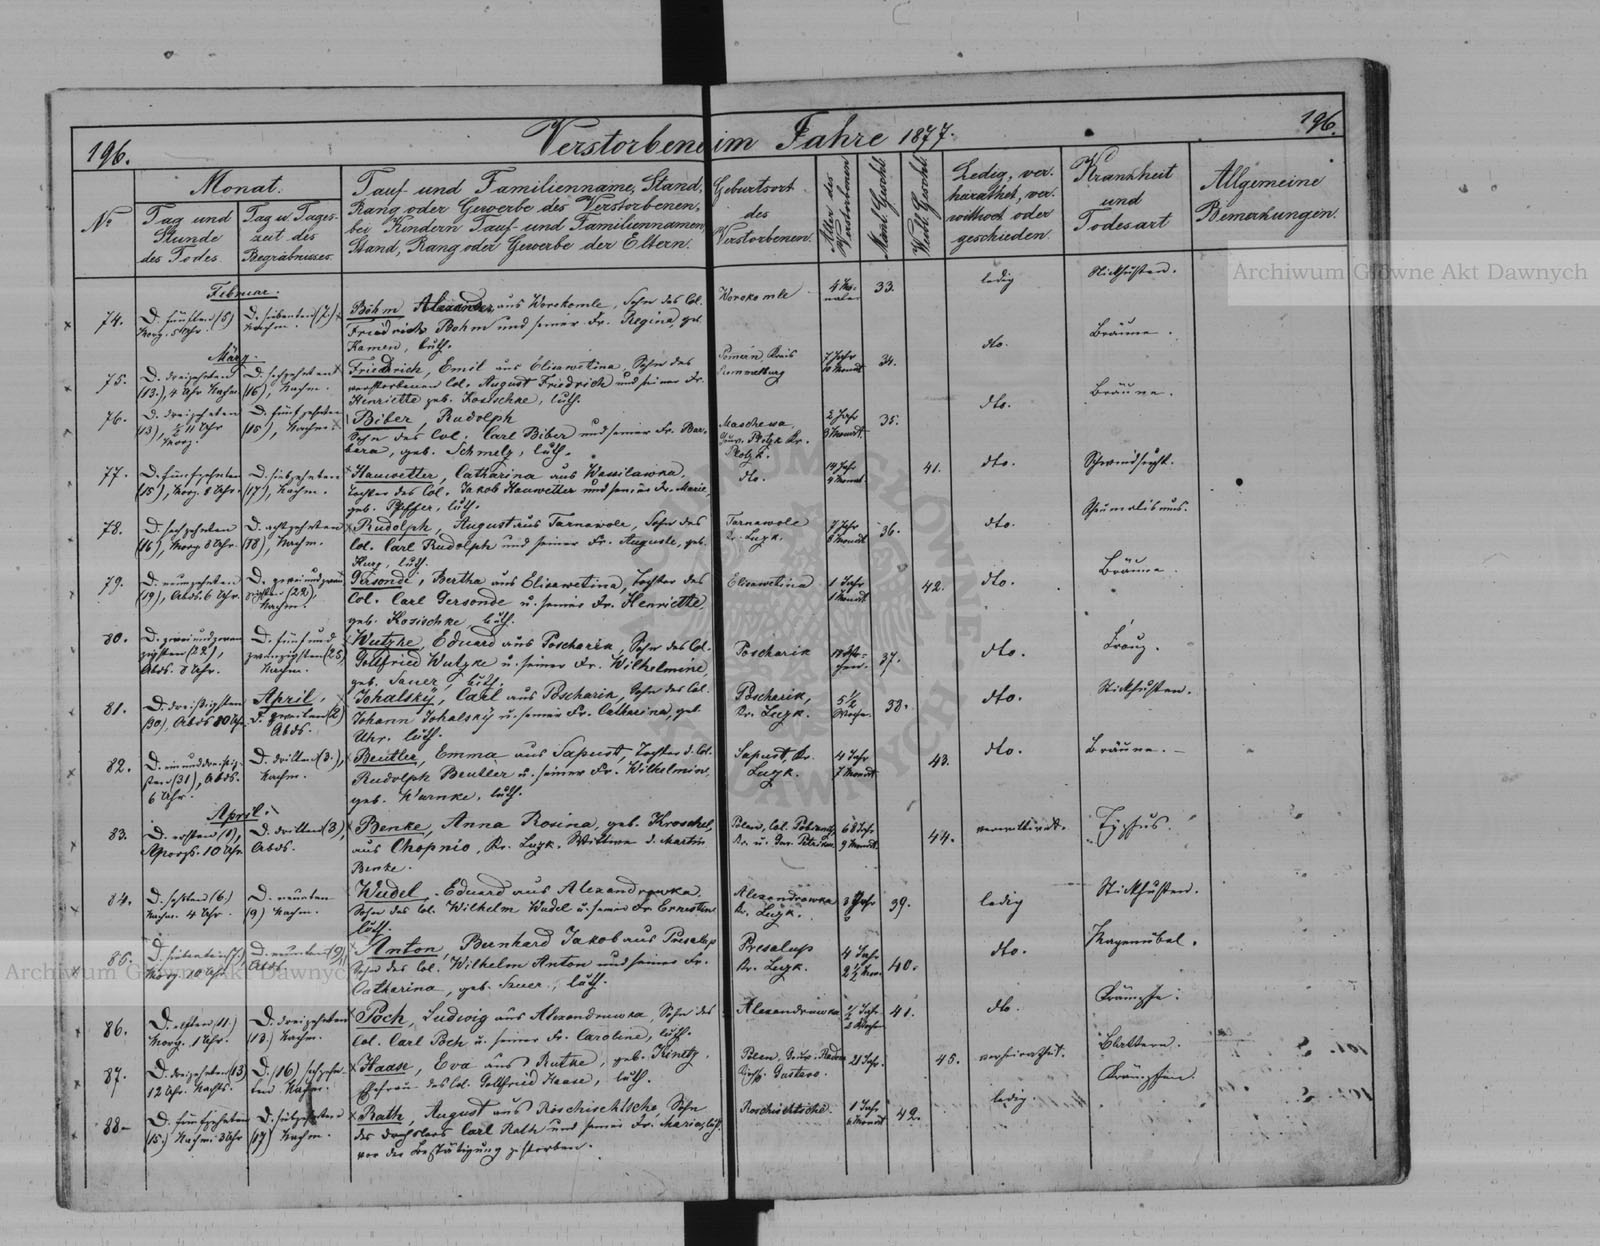 196.
Verstorbene im Jahre 1877.
196.
Nº
Monat.
Tag und Stunde des Todes.
Tag u. Tageszeit des Begräbnisses.
Tauf- und Familienname, Stand,
Rang oder Gewerbe des Verstorbenen,
bei Kindern Tauf- und Familiennamen,
Stand, Rang oder Gewerbe der Eltern.
Geburtsort des Verstorbenen.
Alter des Verstorbenen
Männl. Geschl.
Weibl. Geschl.
Ledig, verheirathet, verwittwet oder geschieden.
Krankheit und Todesart
Allgemeine Bemerkungen.
Archiwum Główne Akt Dawnych
Februar.
74.
D. fünften (5) Morg. 5 Uhr.
D. siebenten (7.) Nachm.
Böhm Alexander aus Worokomle, Sohn des Col.
Friedrich Böhm und seiner Fr. Regina, geb.
Kamen, luth.
Worokomle
4 Monate
33.
ledig
Stickhusten.
März.
75.
D. dreizehnten (13.), 4 Uhr Nachm.
D. sechzehnten (16), Nachm.
Friedrich, Emil aus Elisawetina, Sohn des
verstorbenen Col. August Friedrich und seiner Fr.
Henriette geb. Kosischke, luth.
7 Jahr 10 Monat
34.
dto.
Bräune.
76.
D. dreizehnten (13), ½ 11 Uhr Morg.
D. fünfzehnten (15), Nachm.
Biber, Rudolph
Sohn des Col. Carl Biber und seiner Fr. Barbara, geb. Schmelz, luth.
Maschewa, Gouv. Plozk Kr. Plozk.
2 Jahr 3 Monat.
35.
dto.
Bräune.
77.
D. fünfzehnten (15), Morg. 8 Uhr.
D. siebzehnten (17), Nachm.
Hauwetter, Catharina aus Wassilawka,
Tochter des Col. Jakob Hauwetter und seiner Fr. Marie,
geb. Pfiffer, luth.
dto.
14 Jahr 4 Monat
41.
dto.
Schwindsucht.
78.
D. sechzehnten (16), Morg 8 Uhr.
D. achtzehnten (18), Nachm.
Rudolph, August aus Tarnawole, Sohn des
Col. Carl Rudolph und seiner Fr. Auguste, geb.
Kurz, luth.
Tarnawole Kr. Luzk.
7 Jahr 6 Monat
36.
dto.
Rheumatismus.
79.
D. neunzehnten (19), Abds. 6 Uhr.
D. zweiundzwanzigsten (22), Nachm.
Gersonde, Bertha aus Elisawetina, Tochter des
Col. Carl Gersonde u. seiner Fr. Henriette,
geb. Kosischke, luth.
Elisawetina
1 Jahr 1 Monat.
42.
dto.
Bräune.
80.
D. zweiundzwanzigsten (22), Abds. 8 Uhr.
D. fünfundzwanzigsten (25) Nachm.
Wutzke, Eduard aus Poscharik, Sohn des Col.
Gottfried Wutzke u. seiner Fr. Wilhelmine,
geb. Sauer, luth.
Poscharik
37.
dto.
81.
D. dreißigsten (30), Abds 10 Uhr.
April.
D. zweiten (2) Abds.
Johalsky, Carl aus Poscharik, Sohn des Col.
Johann Johalsky u. seiner Fr. Catharina, geb.
Uhr, luth.
Poscharik, Kr. Luzk.
5½ Woche.
38.
dto.
Stickhusten.
82.
D. einunddreißigsten (31), Abds. 6 Uhr.
D. dritten (3.), Nachm.
Beutler, Emma aus Sapust, Tochter d. Col.
Rudolph Beutler u. seiner Fr. Wilhelmine,
geb. Warnke, luth.
Sapust, Kr. Luzk.
4 Jahr 7 Monat.
43.
dto.
Bräune.
April.
83.
D. ersten (1), Morgs. 10 Uhr
D. dritten (3), Abds.
Benke, Anna Rosina, geb. Kroschel,
aus Chopnio, Kr. Luzk. Wittwe d. Martin
Benke.
68 Jahr 9 Monat.
44.
verwittwet.
Typhus.
84.
D. sechsten (6) Nachm. 4 Uhr.
D. neunten (9) Nachm.
Wudel, Eduard aus Alexandrowka
Sohn des Col. Wilhelm Wudel u. seiner Fr. Ernestine
luth.
Alexandrowka Kr. Luzk.
3 Jahr
39.
ledig
Stickhusten.
85.
D. siebenten (7), Morg. 10 Uhr.
D. neunten (9), Abds.
Anton, Bernhard Jakob aus Presalup
Sohn des Col. Wilhelm Anton und seiner Fr.
Catharina, geb. Sauer, luth.
Presalup Kr. Luzk.
4 Jahr 2½ Mon.
40.
dto.
Magenübel.
Archiwum Główne Akt Dawnych
86.
D. elften (11.) Morg. 1 Uhr.
D. dreizehnten (13.) Nachm.
Poch, Ludwig aus Alexandrowka, Sohn des
Col. Carl Poch u. seiner Fr. Caroline, luth.
Alexandrowka
41.
dto.
Krämpfe.
87.
D. dreizehnten (13) 12 Uhr Nachts.
D. (16) sechzehnten Nachm.
Haase, Eva aus Rutke, geb. Kinetz.
Ehefrau des Col. Gottfried Haase, luth.
Polen, Gouv. Radom
21 Jahr.
45.
verheirathet.
Blattern.
88.
D. fünfzehnten (15.) Nachm. 3 Uhr
D. siebzehnten (17) Nachm.
Rath, August aus Roschischtsche, Sohn
des Drechslers Carl Rath und seiner Fr. Maria, luth.
vor der Bestätigung gestorben.
Roschischtsche.
1 Jahr 6 Monat
42.
ledig.
Krämpfen.